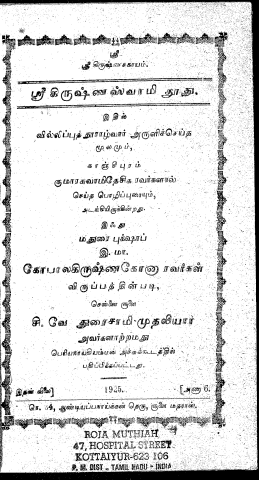 ஸ்ரீ
ஸ்ரீ கிருஷ்ணசகாயம்.
ஸ்ரீ கிருஷ்ணஸ்வாமி தூது.
இதில்
வில்லிப்புத்தூராழ்வார் அருளிச்செய்த
மூலமும்,
காஞ்சிபுரம்
குமாரசுவாமிதேசிகரவர்களால்
செய்த பொழிப்புரையும்,
அடங்கியிருக்கின்றது.
இஃது
மதுரை புக்ஷாப்
இ. மா.
கோபாலகிருஷ்ணகோனாரவர்கள்
விருப்பத்தின்படி,
சென்னை சூளை
சி. வே துரைசாமி-முதலியார்
அவர்களாற்றமது
அச்சுக்கூடத்தில்
பதிப்பிக்கப்பட்டது.
இதன் விலை] 1925. [அணா 6.
தெரு, சூளை மதராஸ்.
ROJA MUTHIAH
47, HOSPITAL STREET
KOTTAIYUR-623 106
P. M. DIST - TAMIL NADU - INDIA